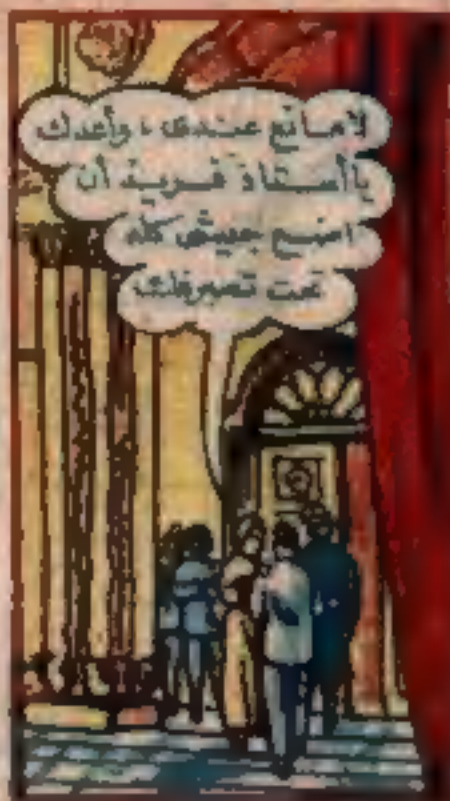 لا مانع عندى ، وأعدك
يا أستاذ فريد أن
أضع جيشى كله
تحت تصرفك